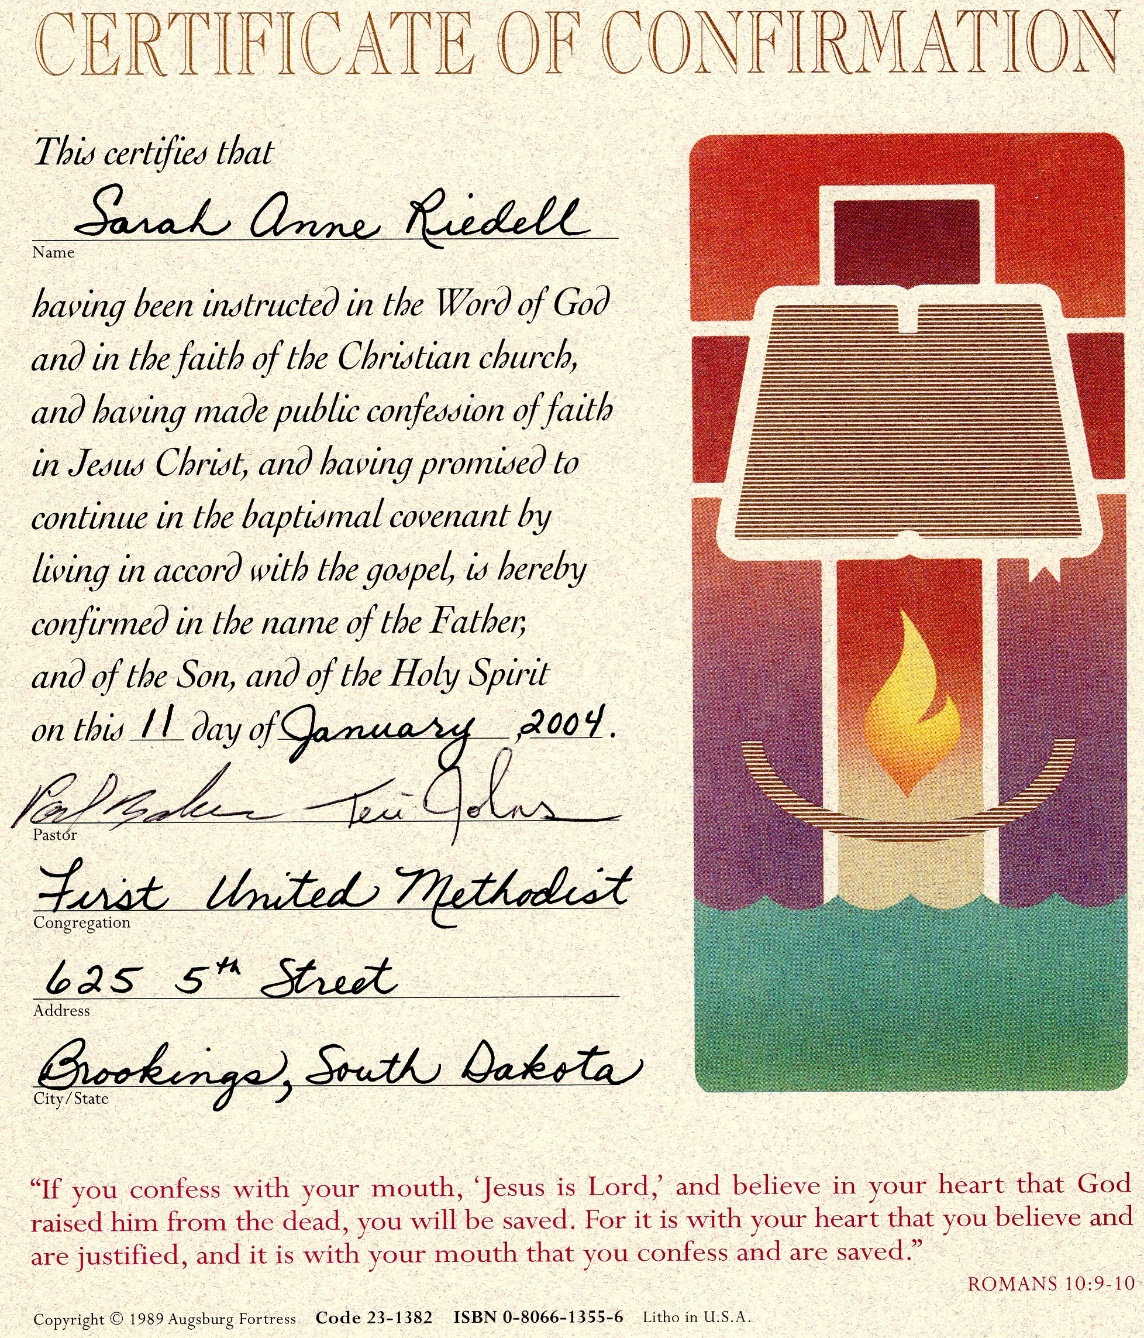 CERTIFICATE OF CONFIRMATION
This certifies that
Sarah Anne Riedell
Name
having been instructed in the Word of God
and in the faith of the Christian church,
and having made public confession of faith
in Jesus Christ, and having promised to
continue in the baptismal covenant by
living in accord with the gospel, is hereby
confirmed in the name of the Father,
and of the Son, and of the Holy Spirit
on this 11 day of January, 2004.
Teri Johns
Pastor
First United Methodist
Congregation
625 5th Street
Address
Brookings, South Dakota
City/State
“If you confess with your mouth, ‘Jesus is Lord,’ and believe in your heart that God
raised him from the dead, you will be saved. For it is with your heart that you believe and
are justified, and it is with your mouth that you confess and are saved.”
ROMANS 10:9-10
Copyright © 1989 Augsburg Fortress Code 23-1382 ISBN 0-8066-1355-6 Litho in U.S.A.